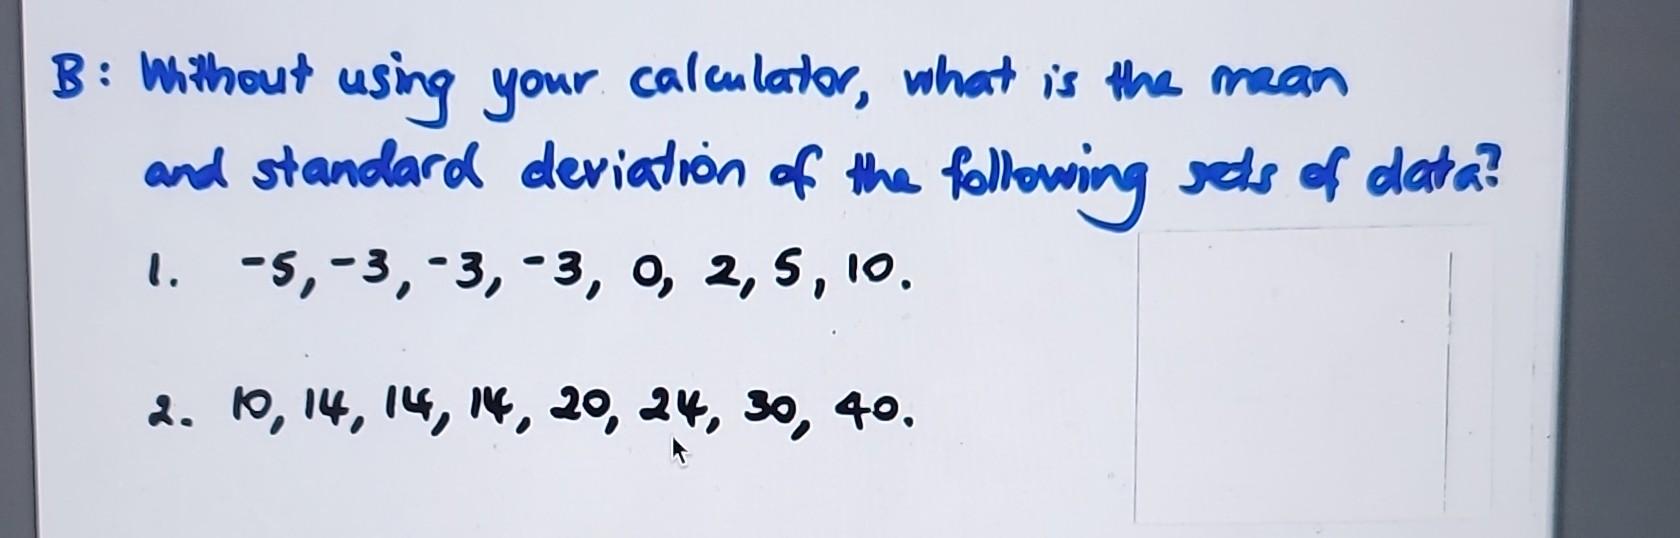 B: Without using your calculator, what is the mean
and standard deviation of the following sets of data?
1. -5, -3, -3, -3, 0, 2, 5, 10.
2. 10, 14, 14, 14, 20, 24, 30, 40.